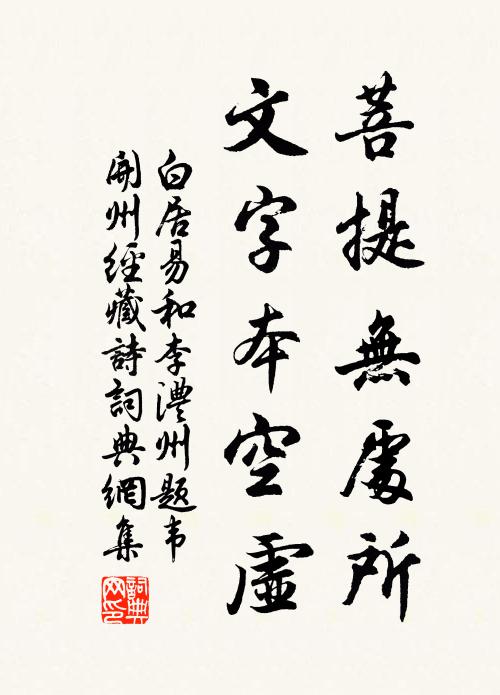 菩提無處所
文字本空虛
白居易和李澧州題韦
開州經藏詩詞典網集
詞典
网印